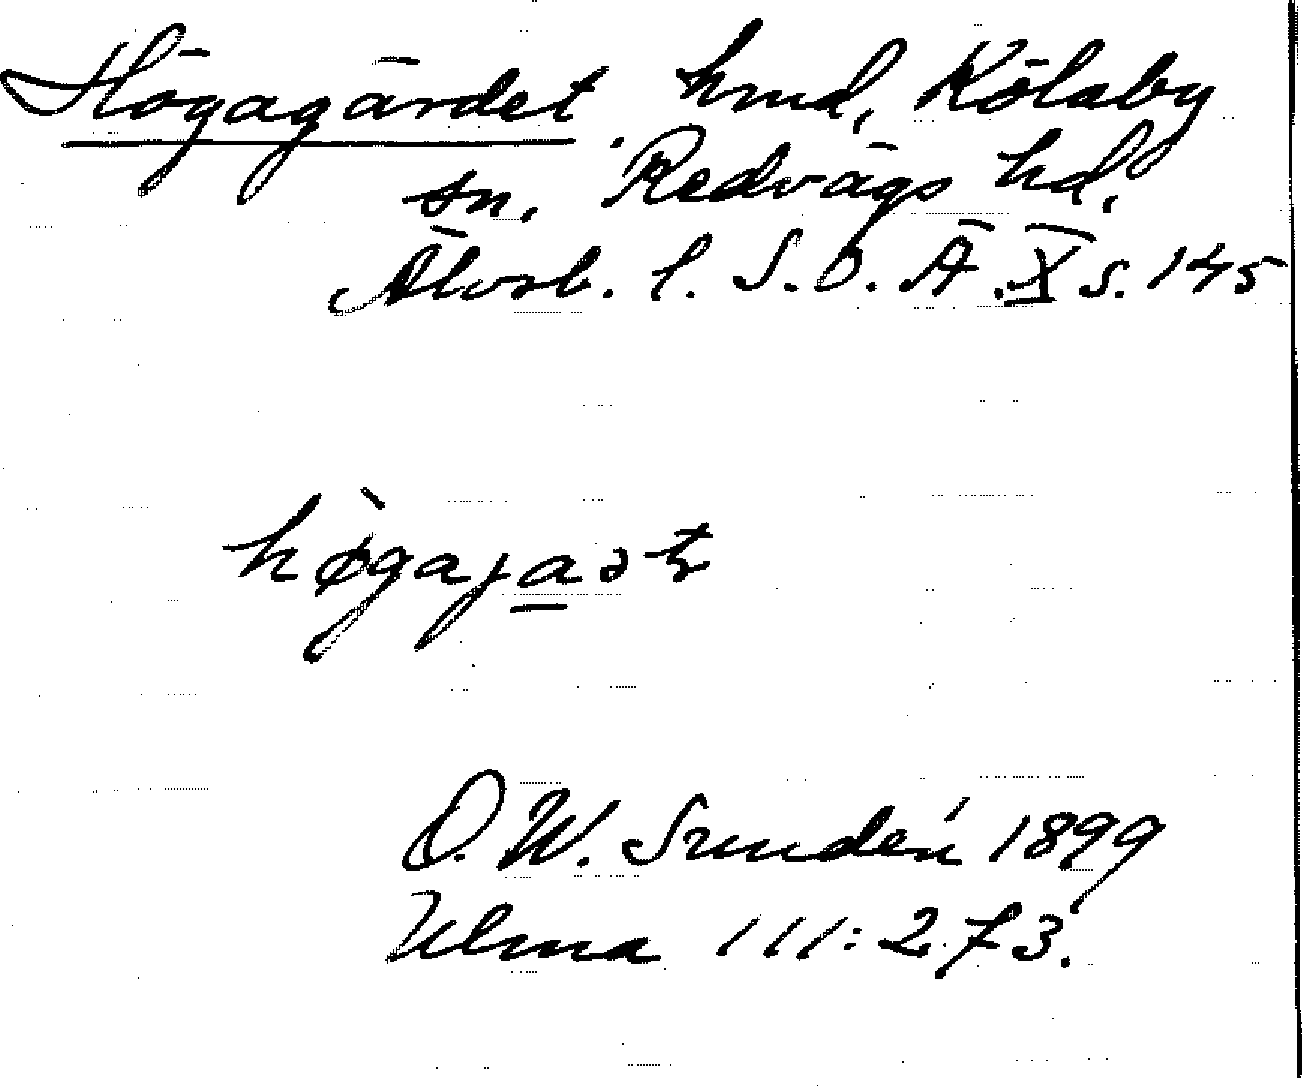 Högagärdet, hmd, Kölaby
sn. Redvägs hd.
Älvsb. l. S.O.Ä. X s. 145
hø̀gajaət
O. W. Sundén 1899
Ulma 111:273.